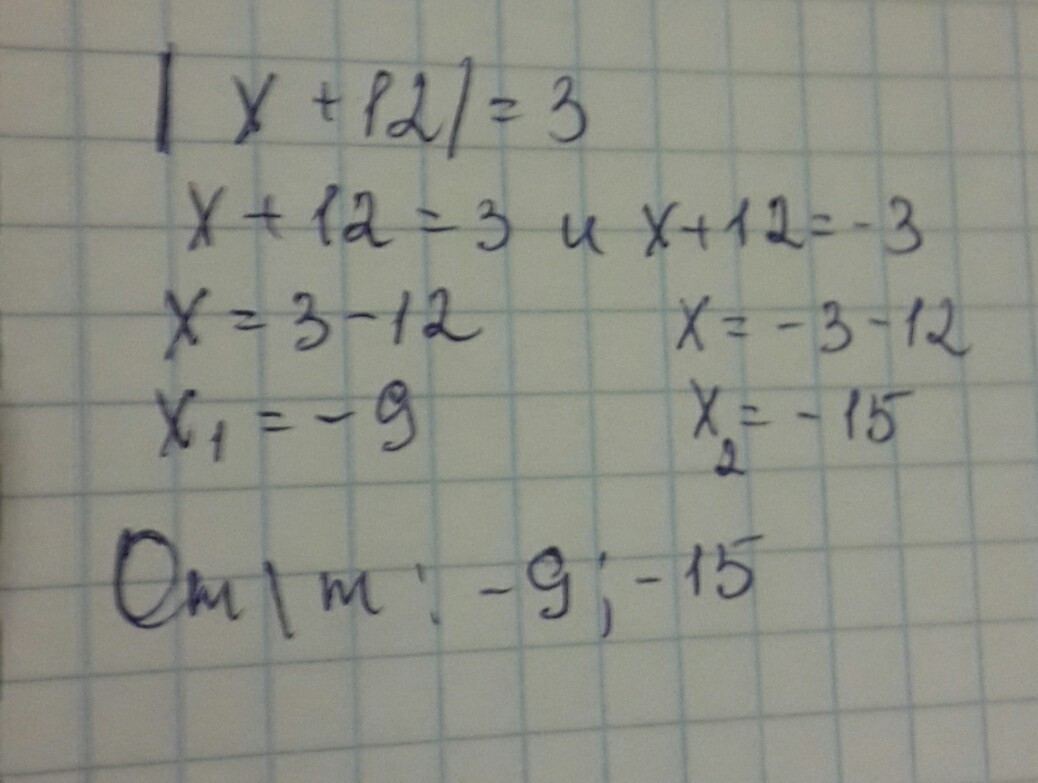 | x + 12| = 3
x + 12 = 3 и x + 12 = - 3
x = 3 - 12 x = - 3 - 12
x₁ = - 9 x₂ = - 15
От\т : - 9 ; - 15